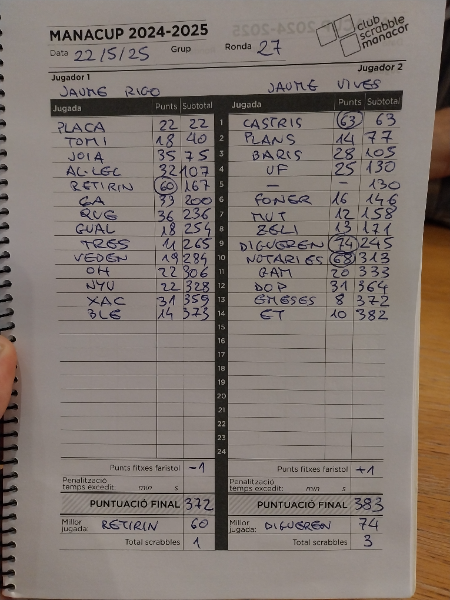 MANACUP 2024-2025
Data 22/5/25 Grup Ronda 27
club scrabble manacor
Jugador 1 Jugador 2
JAUME RIGO JAUME VIVES
Jugada Punts Subtotal Jugada Punts Subtotal
PLACA 22 22 1 CASTRIS 63 63
TOMI 18 40 2 PLANS 14 77
JOIA 35 75 3 BARIS 28 105
AL·LEC 32 107 4 UF 25 130
RETIRIN 60 167 5 — — 130
GA 33 200 6 FONER 16 146
QUE 36 236 7 MUT 12 158
GUAL 18 254 8 ZELI 13 171
TRES 11 265 9 DIGUEREN 74 245
VEDEN 19 284 10 NOTARIES 68 313
OH 22 306 11 GAM 20 333
NYU 22 328 12 DOP 31 364
XAC 31 359 13 EMESES 8 372
BLE 14 373 14 ET 10 382
15
16
17
18
19
20
21
22
23
24
Punts fitxes faristol -1 Punts fitxes faristol +1
Penalització temps excedit: min s Penalització temps excedit: min s
PUNTUACIÓ FINAL 372 PUNTUACIÓ FINAL 383
Millor jugada: RETIRIN 60 Millor jugada: DIGUEREN 74
Total scrabbles 1 Total scrabbles 3